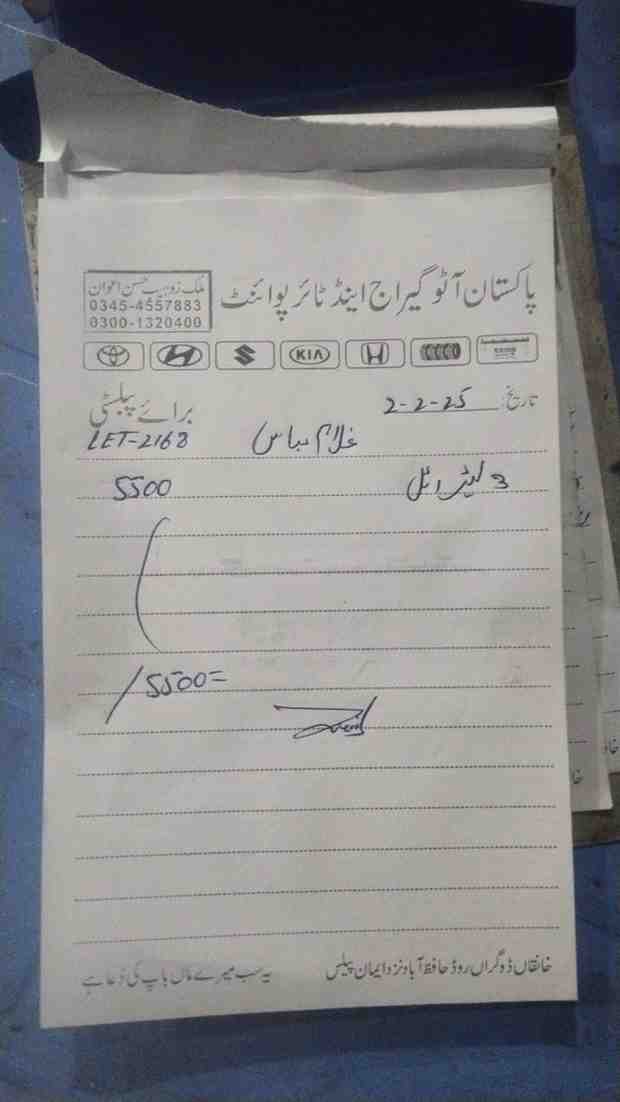 پاکستان آٹو گیراج اینڈ ٹائر پوائنٹ
ملک زوہیب حسن اعوان
0345-4557883
0300-1320400
KIA
تاریخ: 2-2-25
برائے پبلسٹی
غلام عباس LET-2168
3 لیٹر ائل 5500
/5500=
خانقاں ڈوگراں روڈ حافظ آباد نزد ایمان پیلس
یہ سب میرے ماں باپ کی دُعا ہے